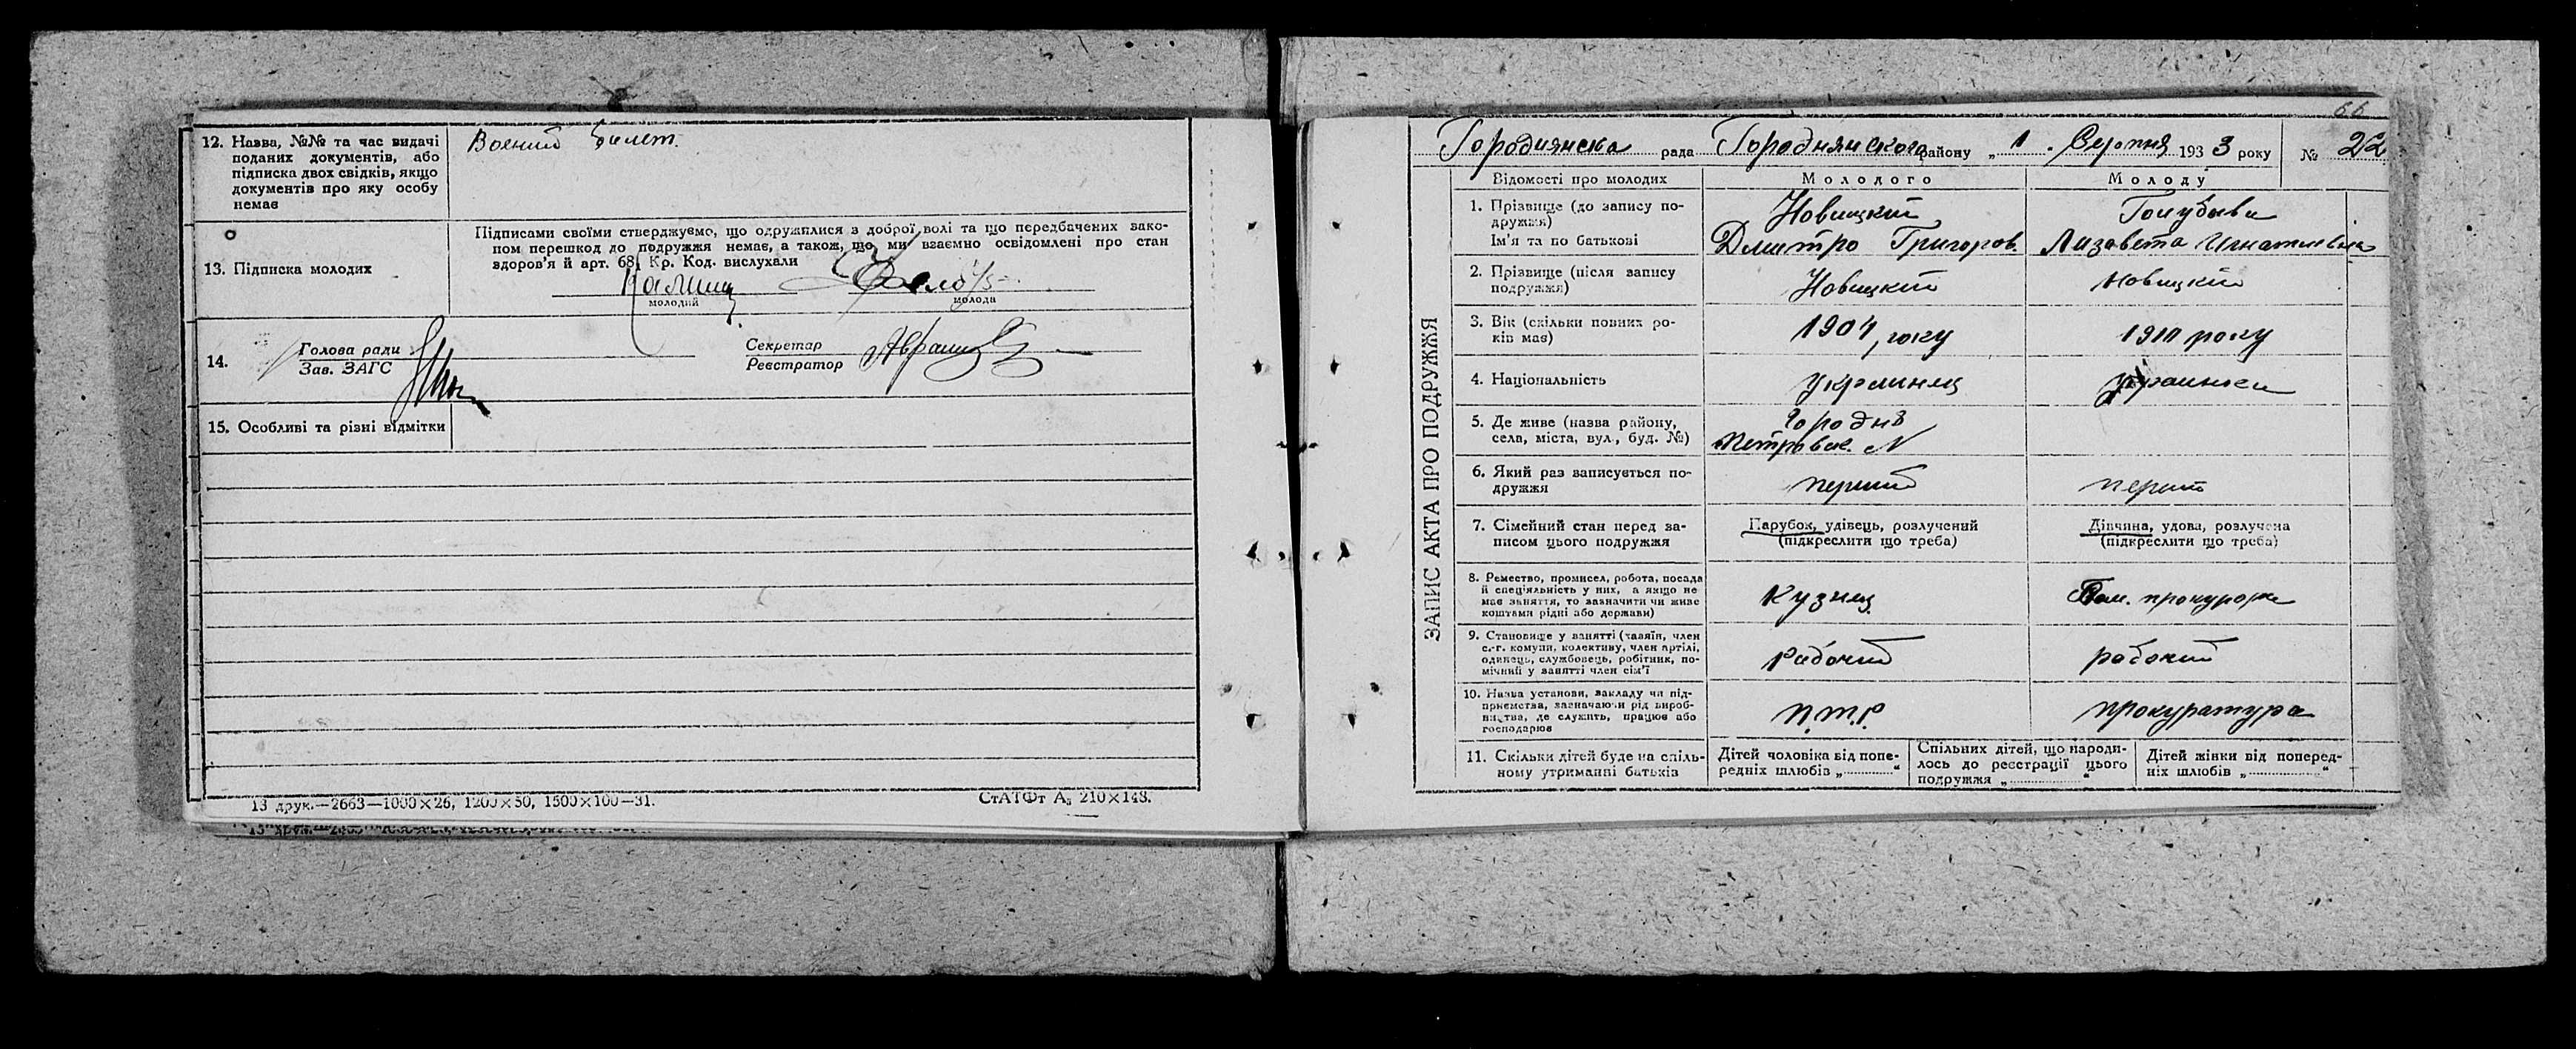 12. Назва, №№ та час видачі
поданих документів, або
підписка двох свідків, якщо
документів про яку особу
немає
Военний билет.
13. Підписка молодих
Підписами своїми стверджуємо, що одружилися з доброї волі та що передбачених зако-
ном перешкод до подружжя немає, а також, що ми взаємно освідомлені про стан
здоров'я й арт. 68 Кр. Код. вислухали
молодий
молода
14.
Голова ради
Зав. ЗАГС
Секретар
Реєстратор
15. Особливі та різні відмітки
13 друк.—2663—1000×26, 1200×50, 1500×100—31.
СтАТФт А₅ 210×148.
66
Городнянська рада Городнянского району „ 1 . Серпня 1933 року № 22
ЗАПИС АКТА ПРО ПОДРУЖЖЯ
Відомості про молодих
Молодого
Молоду
1. Прізвище (до запису по-
дружжя)
Ім'я та по батькові
Новицкий
Дмитро Григоров.
Голубева
Лизавета Игнатиевна
2. Прізвище (після запису
подружжя)
Новицкий
Новицкий
3. Вік (скільки повних ро-
ків має)
1904 року
1910 року
4. Національність
Украинец
украинка
5. Де живе (назва району,
села, міста, вул., буд. №)
Городня
Петровск. N
6. Який раз записується по-
дружжя
перший
перший
7. Сімейний стан перед за-
писом цього подружжя
Парубок, удівець, розлучений
(підкреслити що треба)
Дівчина, удова, розлучена
(підкреслити що треба)
8. Ремество, промисел, робота, посада
й спеціяльність у них, а якщо не
має заняття, то зазначити чи живе
коштами рідні або держави)
Кузнец
Пом. прокурора
9. Становище у занятті (хазяїн, член
с.-г. комуни, колективу, член артілі,
одинець, службовець, робітник, по-
мічний у занятті член сім'ї
Рабочий
рабочий
10. Назва установи, закладу чи під-
приємства, зазначаючи рід вироб-
ництва, де служить, працює або
господарює
П.т.Р
прокуратура
11. Скільки дітей буде на спіль-
ному утриманні батьків
Дітей чоловіка від попе-
редніх шлюбів „ “
Спільних дітей, що народи-
лось до реєстрації цього
подружжя „ “
Дітей жінки від поперед-
ніх шлюбів „ “